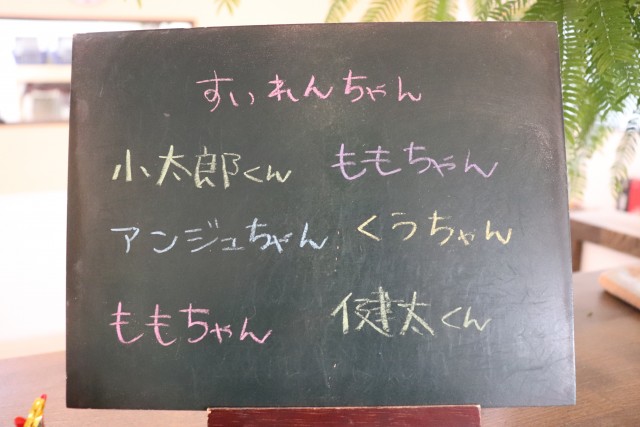 すいれんちゃん
小太郎くん ももちゃん
アンジュちゃん くうちゃん
ももちゃん 健太くん